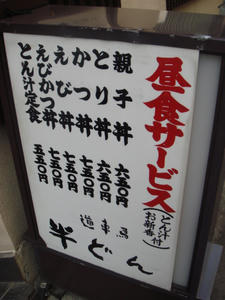 昼食サービス(とん汁お新香付)
親子丼 六五〇円
とり丼 六五〇円
かつ丼 七五〇円
えび丼 七五〇円
えびかつ丼 七五〇円
とん汁定食 五五〇円
馬車道
半どん